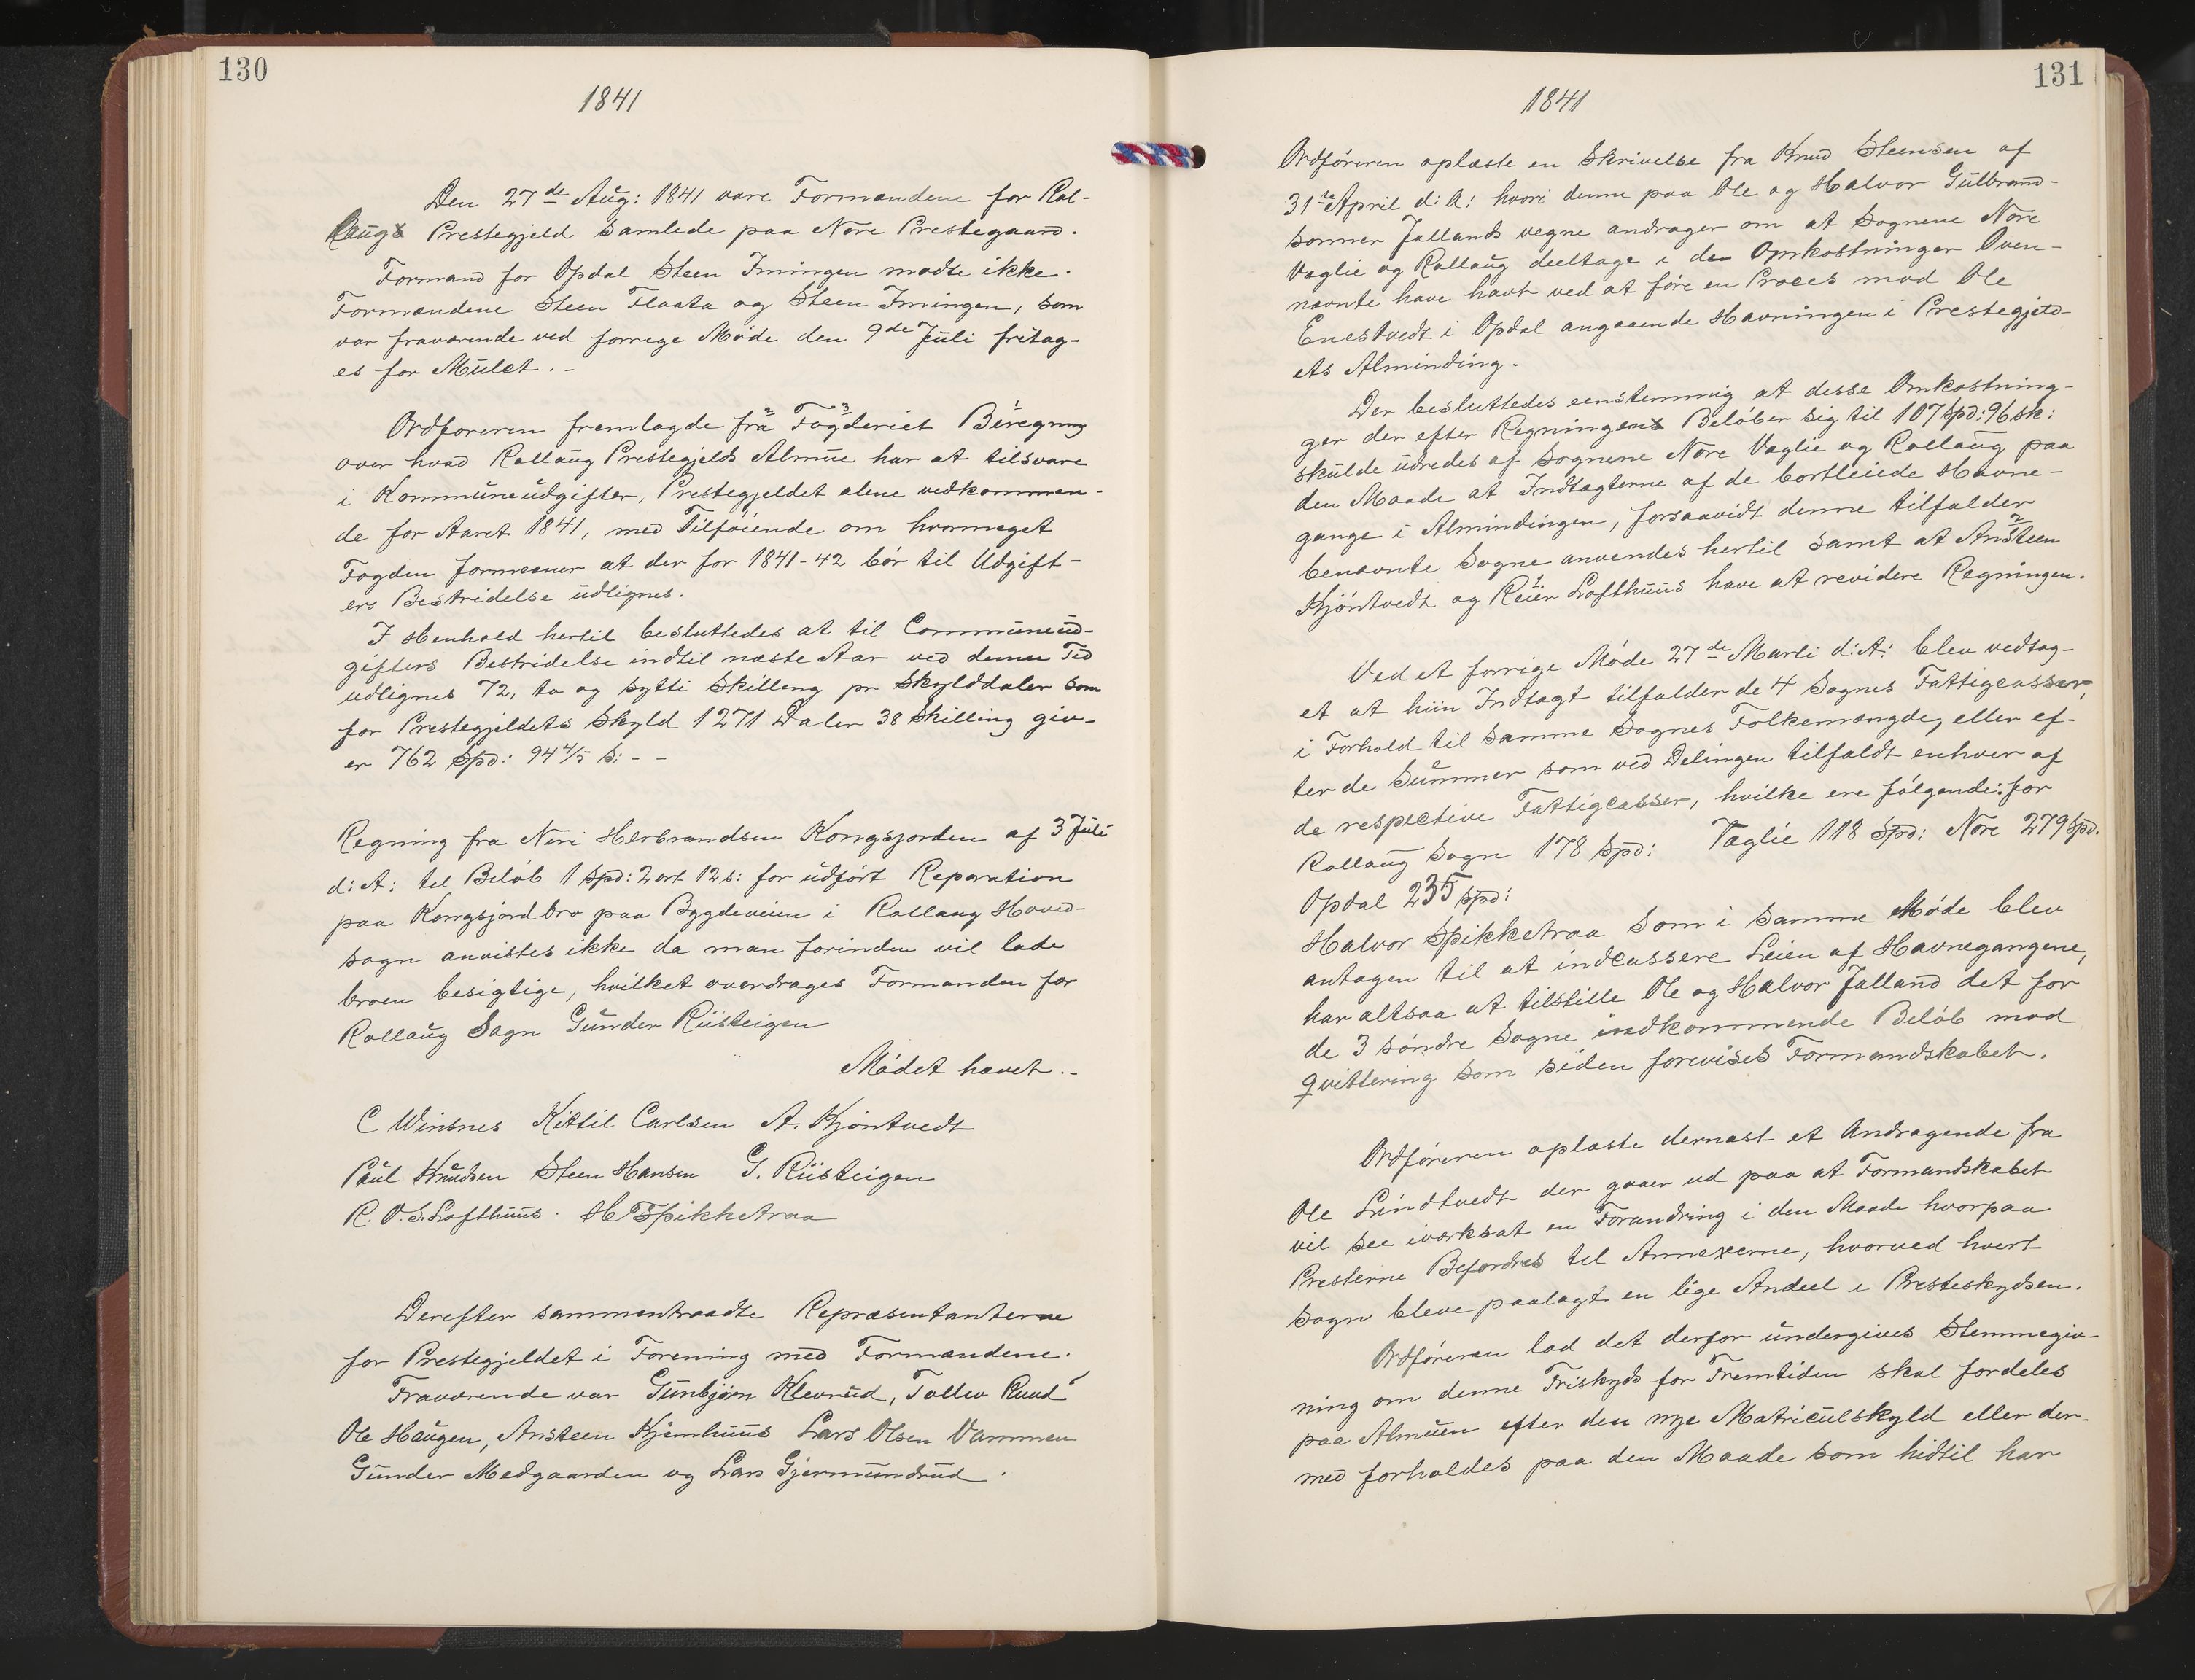 130
1841
Den 27de Aug: 1841 vare Formændene for Rol-
laugs Prestegjeld samlede paa Nore Prestegaard.
Formand for Opdal Steen Imingen mødte ikke.
Formændene Steen Flaata og Steen Imingen, som
var fraværende ved forrege Møde den 9de Juli fritag-
es for Mulct. -
Ordføreren fremlagde fra Fogderiet Beregning
over hvad Rollaug Prestegjelds Almue har at tilsvare
i Kommuneudgifter, Prestegjeldet alene vedkommen-
de for Aaret 1841, med Tilføiende om hvormeget
Fogden formener at der for 1841-42 bør til Udgift-
ers Bestridelse udlignes.
I Henhold hertil besluttedes at til Communeud-
gifters Bestridelse indtil næste Aar ved denne Tid
udlignes 72, to og sytti Skilling pr Skylddaler som
for Prestegjeldets Skyld 1271 Daler 38 Skilling giv-
er 762 Spd: 94 4/5 s: - -
Regning fra Niri Herbrandsen Kongsjorden af 3 Juli
d: A: til Beløb 1 spd: 2 ort 12 s: for udført Reparation
paa Kongsjord bro paa Bygdeveien i Rollaug Hoved-
sogn anvistes ikke da man forinden vil lade
broen besigtige, hvilket overdrages Formanden for
Rollaug Sogn Gunder Riisteigen
Mødet hævet. -
C Winsnes Kittil Carlsen A. Kjøntvedt
Paul Knudsen Steen Hansen G. Riisteigen
R. O. S. Lofthuus. H T Spikketraa
Derefter sammentraadte Repræsentanterne
for Prestegjeldet i Forening med Formændene.
Fraværende var Gunbjørn Klevrud, Tollev Ruud
Ole Haugen, Ansteen Kjemhuus Lars Olsen Vammen
Gunder Medgaarden og Lars Gjermundrud.
131
1841
Ordføreren oplæste en Skrivelse fra Knud Steensen af
31te April d: A: hvori denne paa Ole og Halvor Gulbrand-
sønner Jallands vegne andrager om at Sognene Nore
Væglie og Rollaug deeltage i de Omkostninger Oven-
nævnte have havt ved at føre en Proces mod Ole
Enestvedt i Opdal angaaende Havningen i Prestegjeld-
ets Alminding.
Der besluttedes eenstemmig at disse Omkostning-
ger der efter Regningens Beløber sig til 107 spd: 96 sk:
skulde udredes af Sognene Nore Væglie og Rollaug paa
den Maade at Indtægterne af de bortleiede Havne-
gange i Almindingen, forsaavidt denne tilfalder
benævnte Sogne anvendes hertil samt at Ansteen
Kjøntvedt og Reier Lofthuus have at revidere Regningen.
Ved et forrige Møde 27de Marti d: A: blev vedtag-
et at hiin Indtægt tilfalder de 4 Sognes Fattigcasser,
i Forhold til samme Sognes Folkemængde, eller ef-
ter de Summer som ved Delingen tilfaldt enhver af
de respective Fattigcasser, hvilke ere følgende: for
Rollaug Sogn 178 spd: Væglie 118 spd: Nore 279 spd.
Opdal 235 spd:
Halvor Spikketraa som i samme Møde blev
antagen til at indcassere Leien af Havnegangene,
har altsaa at tilstille Ole og Halvor Jalland det for
de 3 søndre Sogne indkommende Beløb mod
Qvittering som siden forevises Formandskabet.
Ordføreren oplæste dernæst et Andragende fra
Ole Lindtvedt der gaaer ud paa at Formandskabet
vil see iværksat en Forandring i den Maade hvorpaa
Presterne Befordres til Annexerne, hvorved hvert
Sogn bleve paalagt en lige Andeel i Presteskydsen.
Ordføreren lod det derfor undergives Stemmegiv-
ning om denne Friskyds for Fremtiden skal fordeles
paa Almuen efter den nye Matriculskyld eller der-
med forholdes paa den Maade som hidtil har